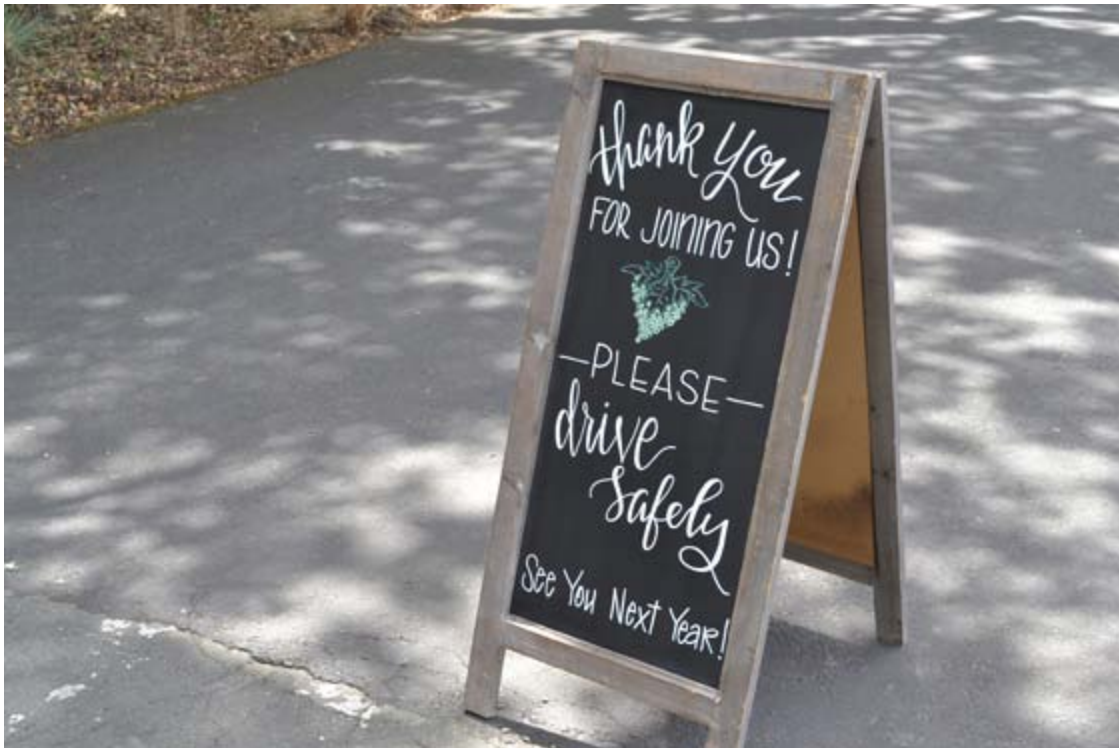 thank you
FOR JOINING US!
—PLEASE—
drive
safely
See You Next Year!